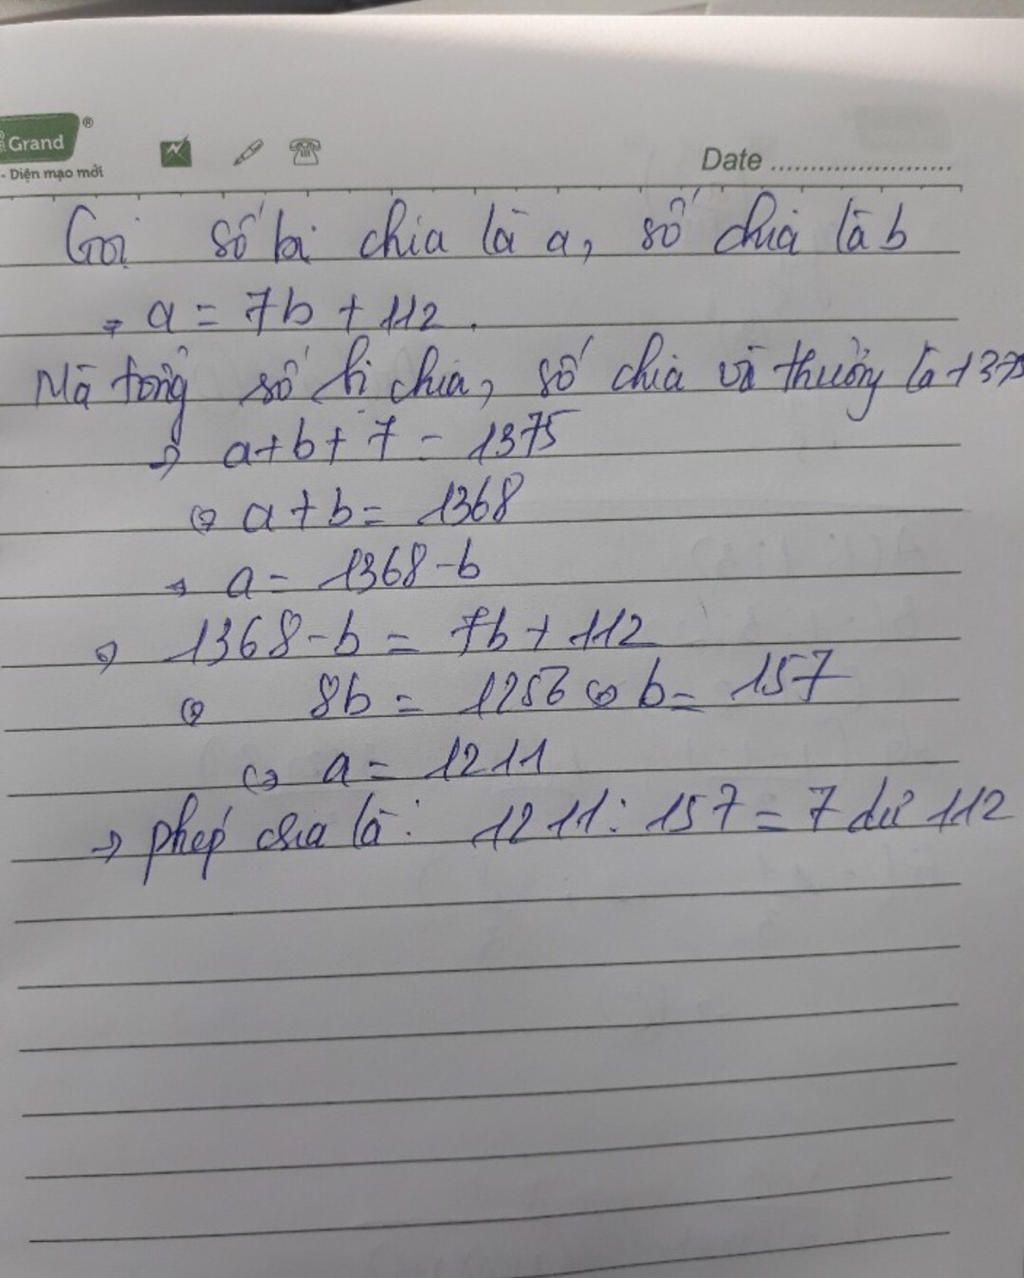 Grand ®
- Diện mạo mới
Date ........................
Gọi số bị chia là a, số chia là b
⇒ a = 7b + 112.
Mà tổng số bị chia, số chia và thương là 1375
⇒ a + b + 7 = 1375
⇔ a + b = 1368
⇒ a = 1368 - b
⇒ 1368 - b = 7b + 112
⇔ 8b = 1256 ⇔ b = 157
⇔ a = 1211
→ phép chia là: 1211 : 157 = 7 dư 112